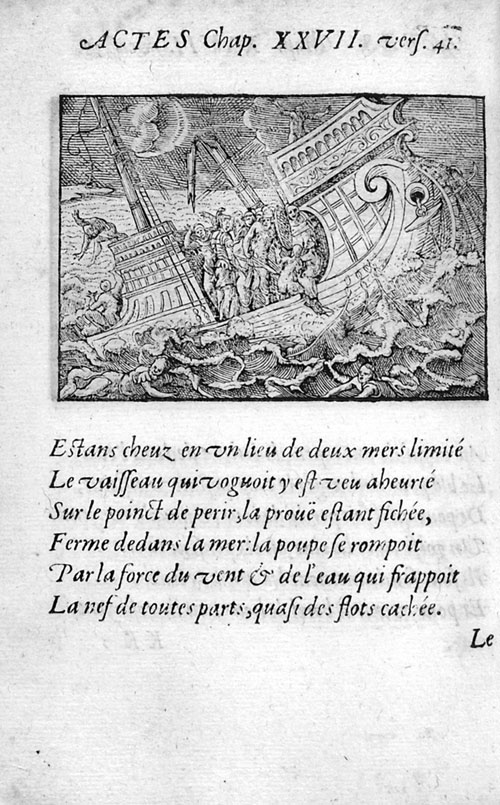 ACTES Chap. XXVII. vers. 41.
Estans cheuz en vn lieu de deux mers limité
Le vaisseau qui voguoit y est veu aheurté
Sur le poinct de perir, la prouë estant fichée,
Ferme dedans la mer: la poupe se rompoit
Par la force du vent & de l'eau qui frappoit
La nef de toutes parts, quasi des flots cachée.
Le